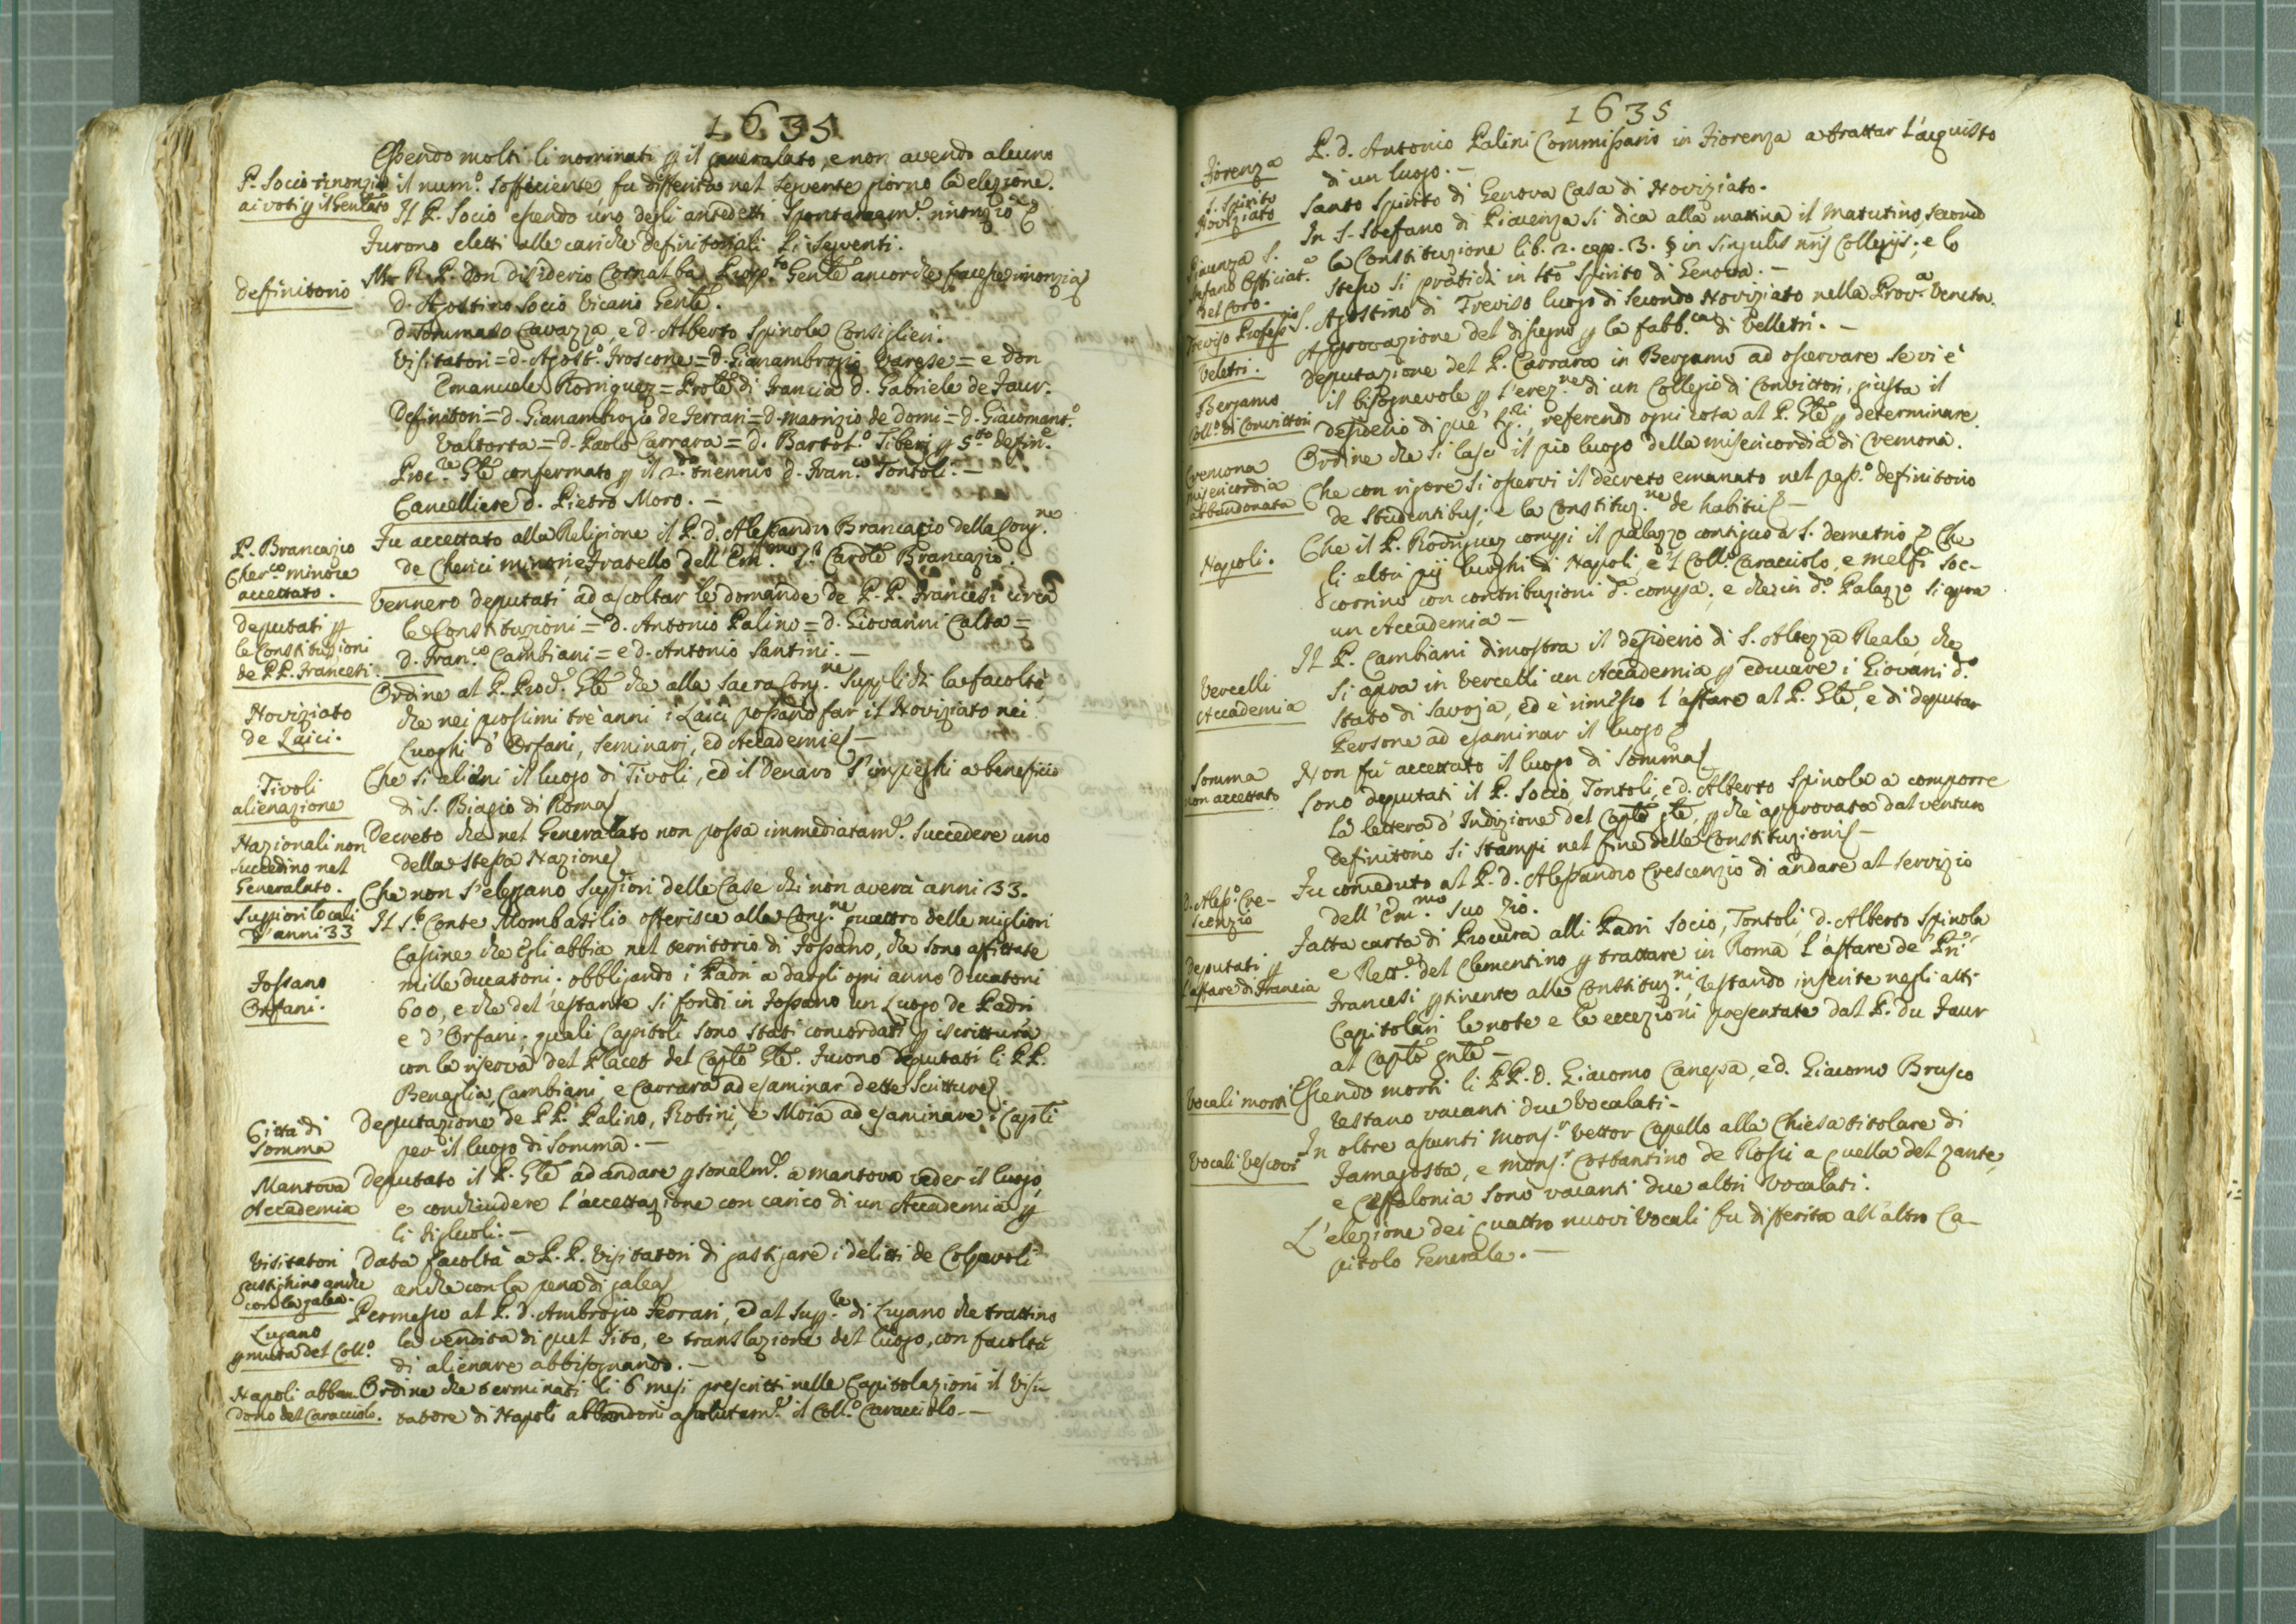 1635
Essendo molti li nominati p il generalato, e non avendo alcuno
P. Socio rinonzia
ai voti p il Gen.lato
il num.o sofficiente fu differita nel seguente giorno la elezione.
Il P. Socio essendo uno degli antedetti spontaneam.e rinonziò
Furono eletti alle cariche definitoriali li seguenti.
definitorio
M. R. P. Don disiderio Cornalba Prep.to Gen.le ancorche facesse rinonzia
d. Agostino Socio Vicario Gen.le.
d. Tommaso Cavazza, e d. Alberto Spinola Consiglieri.
Visitatori = d. Agost.o Froscone = d. Gianambrogio Varese = e don
Emanuele Rodriguez = Prole di Francia d. Gabriele de Faur.
Definitori = d. Gianambrogio de Ferrari = d. Maorizio de Domi = d. Giacomant.o
Valtorta = d. Paolo Carrara = d. Bartol.o Tiberj p 5.to defin.e
Proc.re Gle confermato p il 2.do triennio d. Fran.co Tontoli. -
Cancelliere d. Pietro Moro. -
P. Brancazio
Cher.co minore
accettato.
Fu accettato alla Religione il P. d. Alessandro Brancazio della Cong.ne
de Cherici minori e fratello dell'Em.mo S.r Cardle Brancazio.
deputati p
le Constituzioni
de PP. Francesi.
Vennero deputati ad ascoltar le domande de P.P. Francesi circa
le Constituzioni = d. Antonio Palino = d. Giovanni Calta =
d. Fran.co Cambiani = e d. Antonio Santini. -
Noviziato
de Laici.
Ordine al P. Proc.e Gle che alla Sacra Cong.ne supplichi la facoltà
che nei prossimi tre anni i Laici possano far il Noviziato nei
Luoghi d'Orfani, Seminarj, ed Accademie -
Tivoli
alienazione
Che si alieni il luogo di Tivoli, ed il denaro s'impieghi a beneficio
di S. Biagio di Roma
Nazionali non
succedino nel
Generalato.
Decreto che nel Generalato non possa immediatam.e succedere uno
della stessa Nazione
Suppiori locali
d'anni 33
Che non s'eleggano Suppiori delle Case chi non averà anni 33.
Fossano
Orfani.
Il S.r Conte Mombasilio offerisce alla Cong.ne quattro delle migliori
Cassine che egli abbia nel territorio di Fossano, che sono affittate
mille ducatoni; obbligando i Padri a dargli ogni anno Ducatoni
600, e che del restante si fondi in Fossano un Luogo de Padri
e d'Orfani; quali Capitoli sono stati concordati p iscrittura
con la riserva del Placet del Caplo Gle. Furono deputati li PP.
Benaglia, Cambiani, e Carrara ad esaminar dette Scritture
Città di
Somma
Deputazione de PP. Palino, Robini, e Moia ad esaminare i Capli
per il luogo di Somma. -
Mantova
Accademia
Deputato il P. Gle ad andare psonalm.e a Mantova veder il luogo,
e conchiudere l'accettazione con carico di un Accademia p
li figliuoli. -
Visitatori
castighino anche
con la galea.
Data facoltà a P.P. Visitatori di gastigare i delitti de Colpevoli
anche con la pena di galea
Lugano
pmuta del Coll.o
Permesso al P. d. Ambrogio Ferrari, e al Sup.re di Lugano che trattino
la vendita di quel sito, e translazione del luogo, con facoltà
di alienare abbisognando. -
Napoli abban
dono del Caracciolo.
Ordine che terminati li 6 mesi prescritti nelle Capitolazioni il Visi-
tatore di Napoli abbandoni assolutam.e il Coll.o Caracciolo. -
1635
Fiorenza
P. d. Antonio Palini Commissario in Fiorenza a trattar l'acquisto
di un luogo. -
S. Spirito
Noviziato
Santo Spirito di Genova Casa di Noviziato.
Piacenza S.
Stefano Officiat.a
del Coro.
In S. Stefano di Piacenza si dica alla mattina il Matutino, secondo
la Constituzione lib. 2. cap. 3. § in singulis nris Collegijs; e lo
stesso si pratichi in Sto Spirito di Genova. -
Treviso Profess.rio
S. Agostino di Treviso luogo di secondo Noviziato nella Prov.a Veneta.
Veletri.
Approvazione del disegno p la fabb.ca di Velletri. -
Bergamo
Coll.o di Convittori
Deputazione del P. Carrara in Bergamo ad osservare se vi è
il bisognevole p l'erez.ne di un Collegio di Convittori, giusta il
desiderio di que' Sg.ri, referendo ogni cosa al P. Gle p determinare.
Cremona
misericordia
abbandonata
Ordine che si lasci il pio luogo della misericordia di Cremona.
Che con rigore si osservi il decreto emanato nel pass.o definitorio
de Studentibus; e la Constituz.ne de habitu -
Napoli.
Che il P. Rodriguez compri il palazzo contiguo a S. Demetrio Che
li altri pij luoghi di Napoli, e 'l Coll.o Caracciolo, e Melfi soc-
corrino con contribuzioni d.a compra; e che in d.o Palazzo si apra
un Accademia -
Vercelli
Accademia
Il P. Cambiani dimostra il desiderio di S. Altezza Reale, che
si apra in Vercelli un Accademia p educare i Giovani d.o
Stato di Savoja, ed è rimesso l'affare al P. Gle, e di deputar
Persone ad esaminar il luogo
Somma
non accettato
Non fù accettato il luogo di Somma
Sono deputati il P. Socio, Tontoli, e d. Alberto Spinola a comporre
la lettera d'Indizione del Caplo gle, p che approvata dal venturo
definitorio si stampi nel fine delle Constituzioni -
d. Aless.o Cre-
scenzio
Fu conceduto al P. d. Alessandro Crescenzio di andare al servizio
dell'Em.mo suo Zio.
Deputati p
l'affare di Francia
Fatta carta di Procura alli Padri Socio, Tontoli, d. Alberto Spinola
e Rett.e del Clementino p trattare in Roma l'affare de' Pri
Francesi ptinente alle Constituz.ni, restando inserite negli atti
Capitolari le note e le eccezioni presentate dal P. Du Faur
al Caplo gnle -
Vocali morti
Essendo morti li PP. d. Giacomo Canepa, e d. Giacomo Brusco
restano vacanti due Vocalati -
Vocali Vescovi
In oltre assunti Mons.r Vettor Capello alla Chiesa titolare di
Famagosta, e Mons.r Costantino de Rossi a quella del Zante,
e Ceffalonia sono vacanti due altri Vocalati.
L'elezione dei quattro nuovi Vocali fu differita all'altro Ca-
pitolo Generale. -